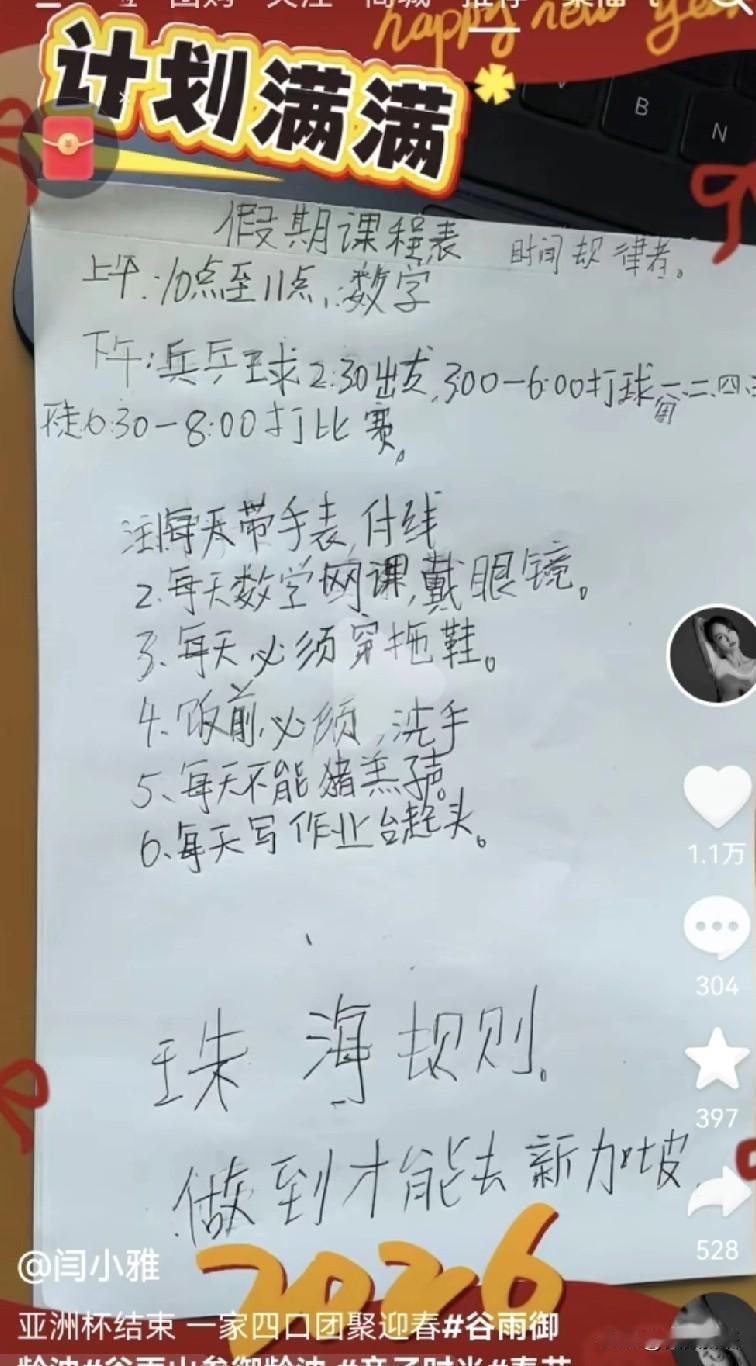 happy new year
计划满满
B
N
假期课程表 时间规律者。
上午:10点至11点,:数学
下午:兵乒球2:30出发,300-6:00打球一二.四
徒6:30-8:00打比赛,
注海天带手表,付线
2.每天数学网课,戴眼镜。
3、每天必须穿拖鞋。
4.饭前,必须,洗手
5、每天不能猪羔子。
6、每天写作业台起头。
珠海规则。
做到才能去新加坡
1.1万
304
397
528
2026
@闫小雅
亚洲杯结束 一家四口团聚迎春#谷雨御